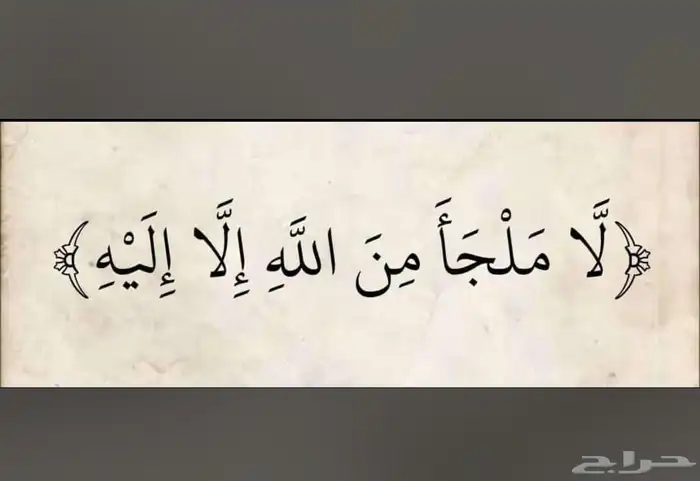 ﴿لَّا مَلْجَأَ مِنَ اللَّهِ إِلَّا إِلَيْهِ﴾
حراج